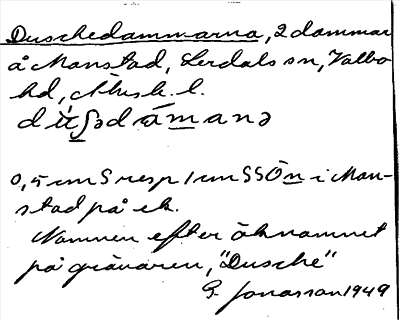 Duschedammarna, 2 dammar
å Manstad, Lerdals sn, Valbo
hd, Älvsb. l.
0,5 cm S resp 1 cm SSÖ n i Man-
stad på ek.
Namnen efter öknamnet
på grävaren, "Dusche"
G. Jonasson 1949